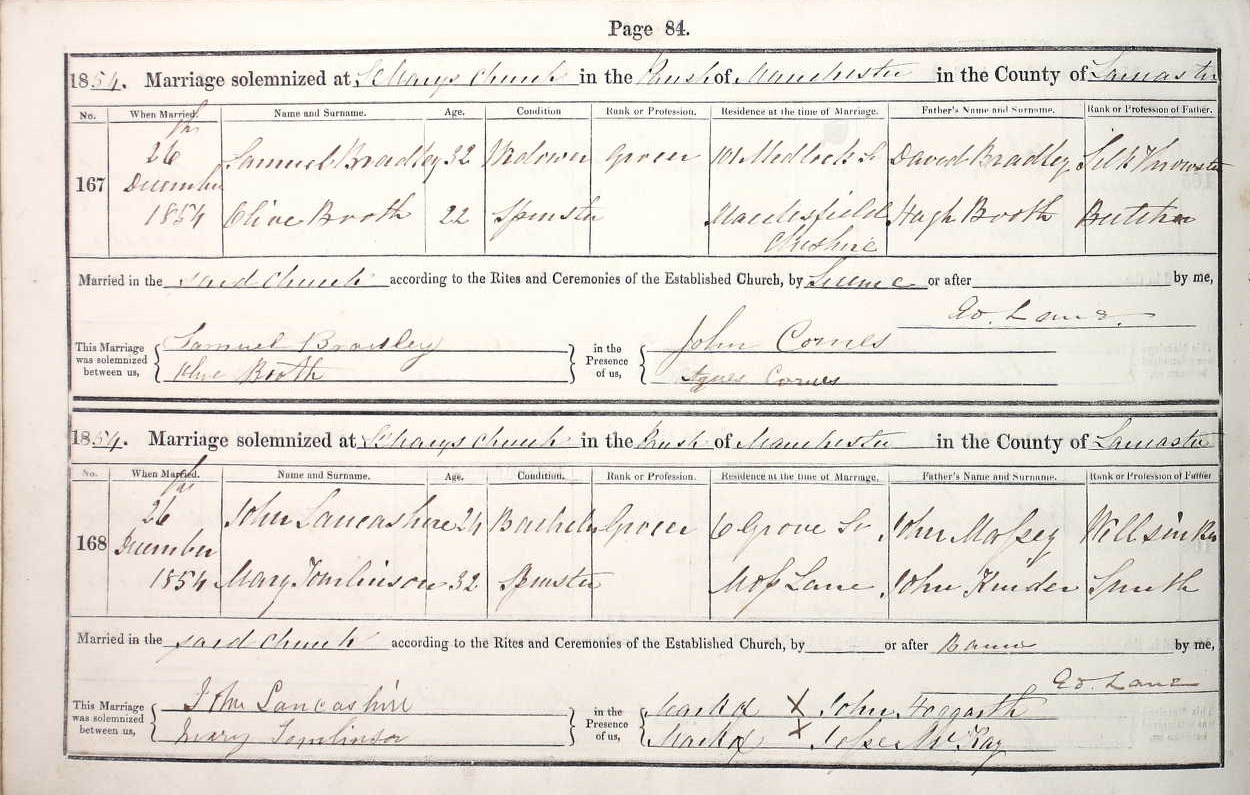 Page 84.
1854. Marriage solemnized at St Marys Church in the Parish of Manchester in the County of Lancaster
No. When Married. Name and Surname. Age. Condition Rank or Profession. Residence at the time of Marriage. Father's Name and Surname. Rank or Profession of Father.
167 26th December 1854 Samuel Bradley 32 Widower Grocer Medlock St David Bradley Silk Throwster
Olive Booth 22 Spinster Macclesfield Cheshire Hugh Booth Butcher
Married in the said Church according to the Rites and Ceremonies of the Established Church, by License or after by me,
Ed. Lane.
This Marriage was solemnized between us, Samuel Bradley in the Presence of us, John Cornes
Olive Booth Agnes Cornes
1854. Marriage solemnized at St Marys Church in the Parish of Manchester in the County of Lancaster
No. When Married. Name and Surname. Age. Condition. Rank or Profession. Residence at the time of Marriage. Father's Name and Surname. Rank or Profession of Father
168 26th December 1854 John Lancashire 24 Bachelor Grocer 6 Grove St John Mossey Well sinker
Mary Tomlinson 32 Spinster Moss Lane John Kinder Smith
Married in the said Church according to the Rites and Ceremonies of the Established Church, by or after Banns by me,
Ed. Lane
This Marriage was solemnized between us, John Lancashire in the Presence of us, Mark of X John Hoggarth
Mary Tomlinson Mark of X Jesse McKay